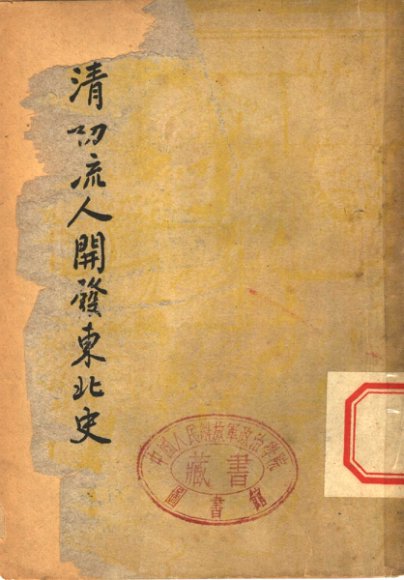 清初流人開發東北史
中國人民解放軍政治學院
藏書
圖書館